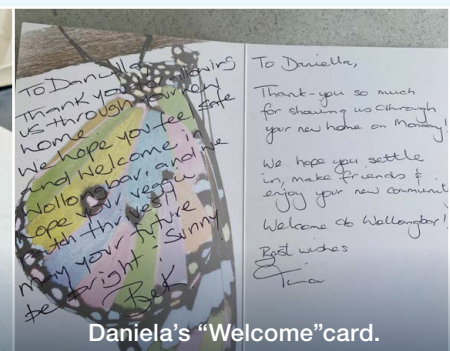 To Daniella
Thank you allowing
us through your new
home
We hope you feel safe
and welcome in
Wollongbar, and we
hope your veggie
patch thrives
May your future
be bright & sunny
Bek
To Daniella,
Thank-you so much
for showing us through
your new home on Monday!
We hope you settle
in, make friends &
enjoy your new communit
Welcome to Wollongbar!
Best wishes
Tina
Daniela's "Welcome"card.